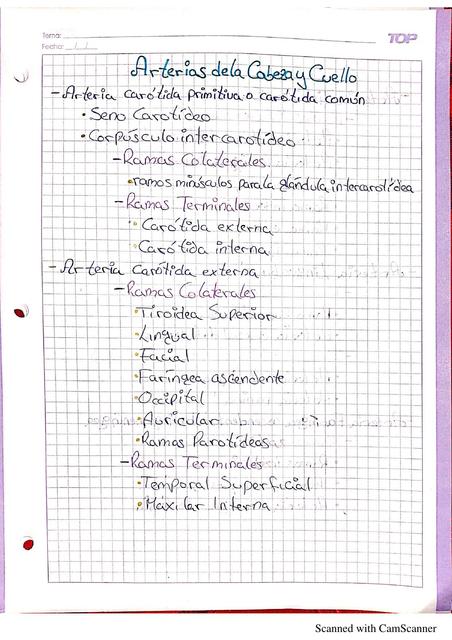 Tema:
TOP
Fecha: __/__/__
Arterias de la Cabeza y Cuello
- Arteria carótida primitiva o carótida común
• Seno Carotídeo
• Corpúsculo intercarotídeo
- Ramas Colaterales
• ramos minúsculos para la glándula intercarotídea
- Ramas Terminales
• Carótida externa
• Carótida interna
- Arteria Carótida externa
- Ramas Colaterales
• Tiroidea Superior
• Lingual
• Facial
• Faríngea ascendente
• Occipital
• Auricular
• Ramas Parotídeas
- Ramas Terminales
• Temporal Superficial
• Máxilar Interna
Scanned with CamScanner